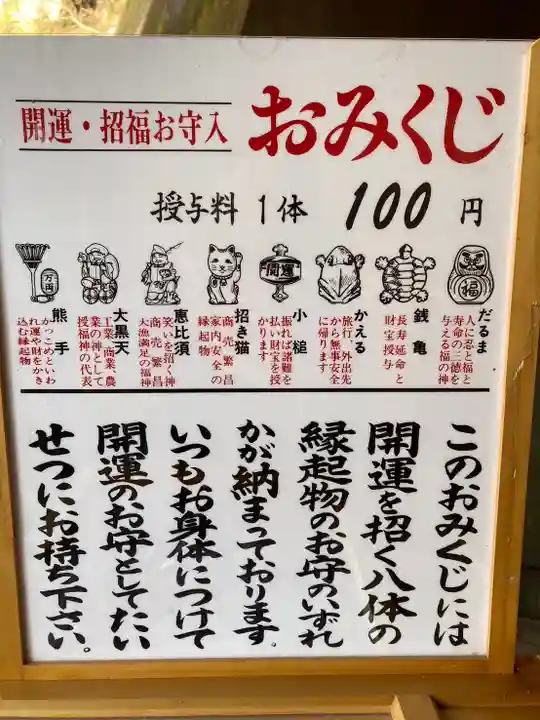 開運・招福お守入
おみくじ
授与料1体 100円
だるま
人に忍と福と
寿命の三徳を
与える福の神
銭亀
長寿延命と
財宝授与
かえる
旅行、外出先
から無事安全
に帰ります
小槌
振れば諸難を
払い財宝を授
かります
招き猫
商売繁昌
家内安全の
縁起物
恵比須
笑いを招く神
商売繁昌
大漁満足の福神
大黒天
工業、商業、農
業の神として
授福神の代表
熊手
かっこめといわ
れ運や財をかき
込む縁起物
開運
万両
このおみくじには
開運を招く八体の
縁起物のお守のいずれ
かが納まっております。
いつもお身体につけて
開運のお守としてたい
せつにお持ち下さい。